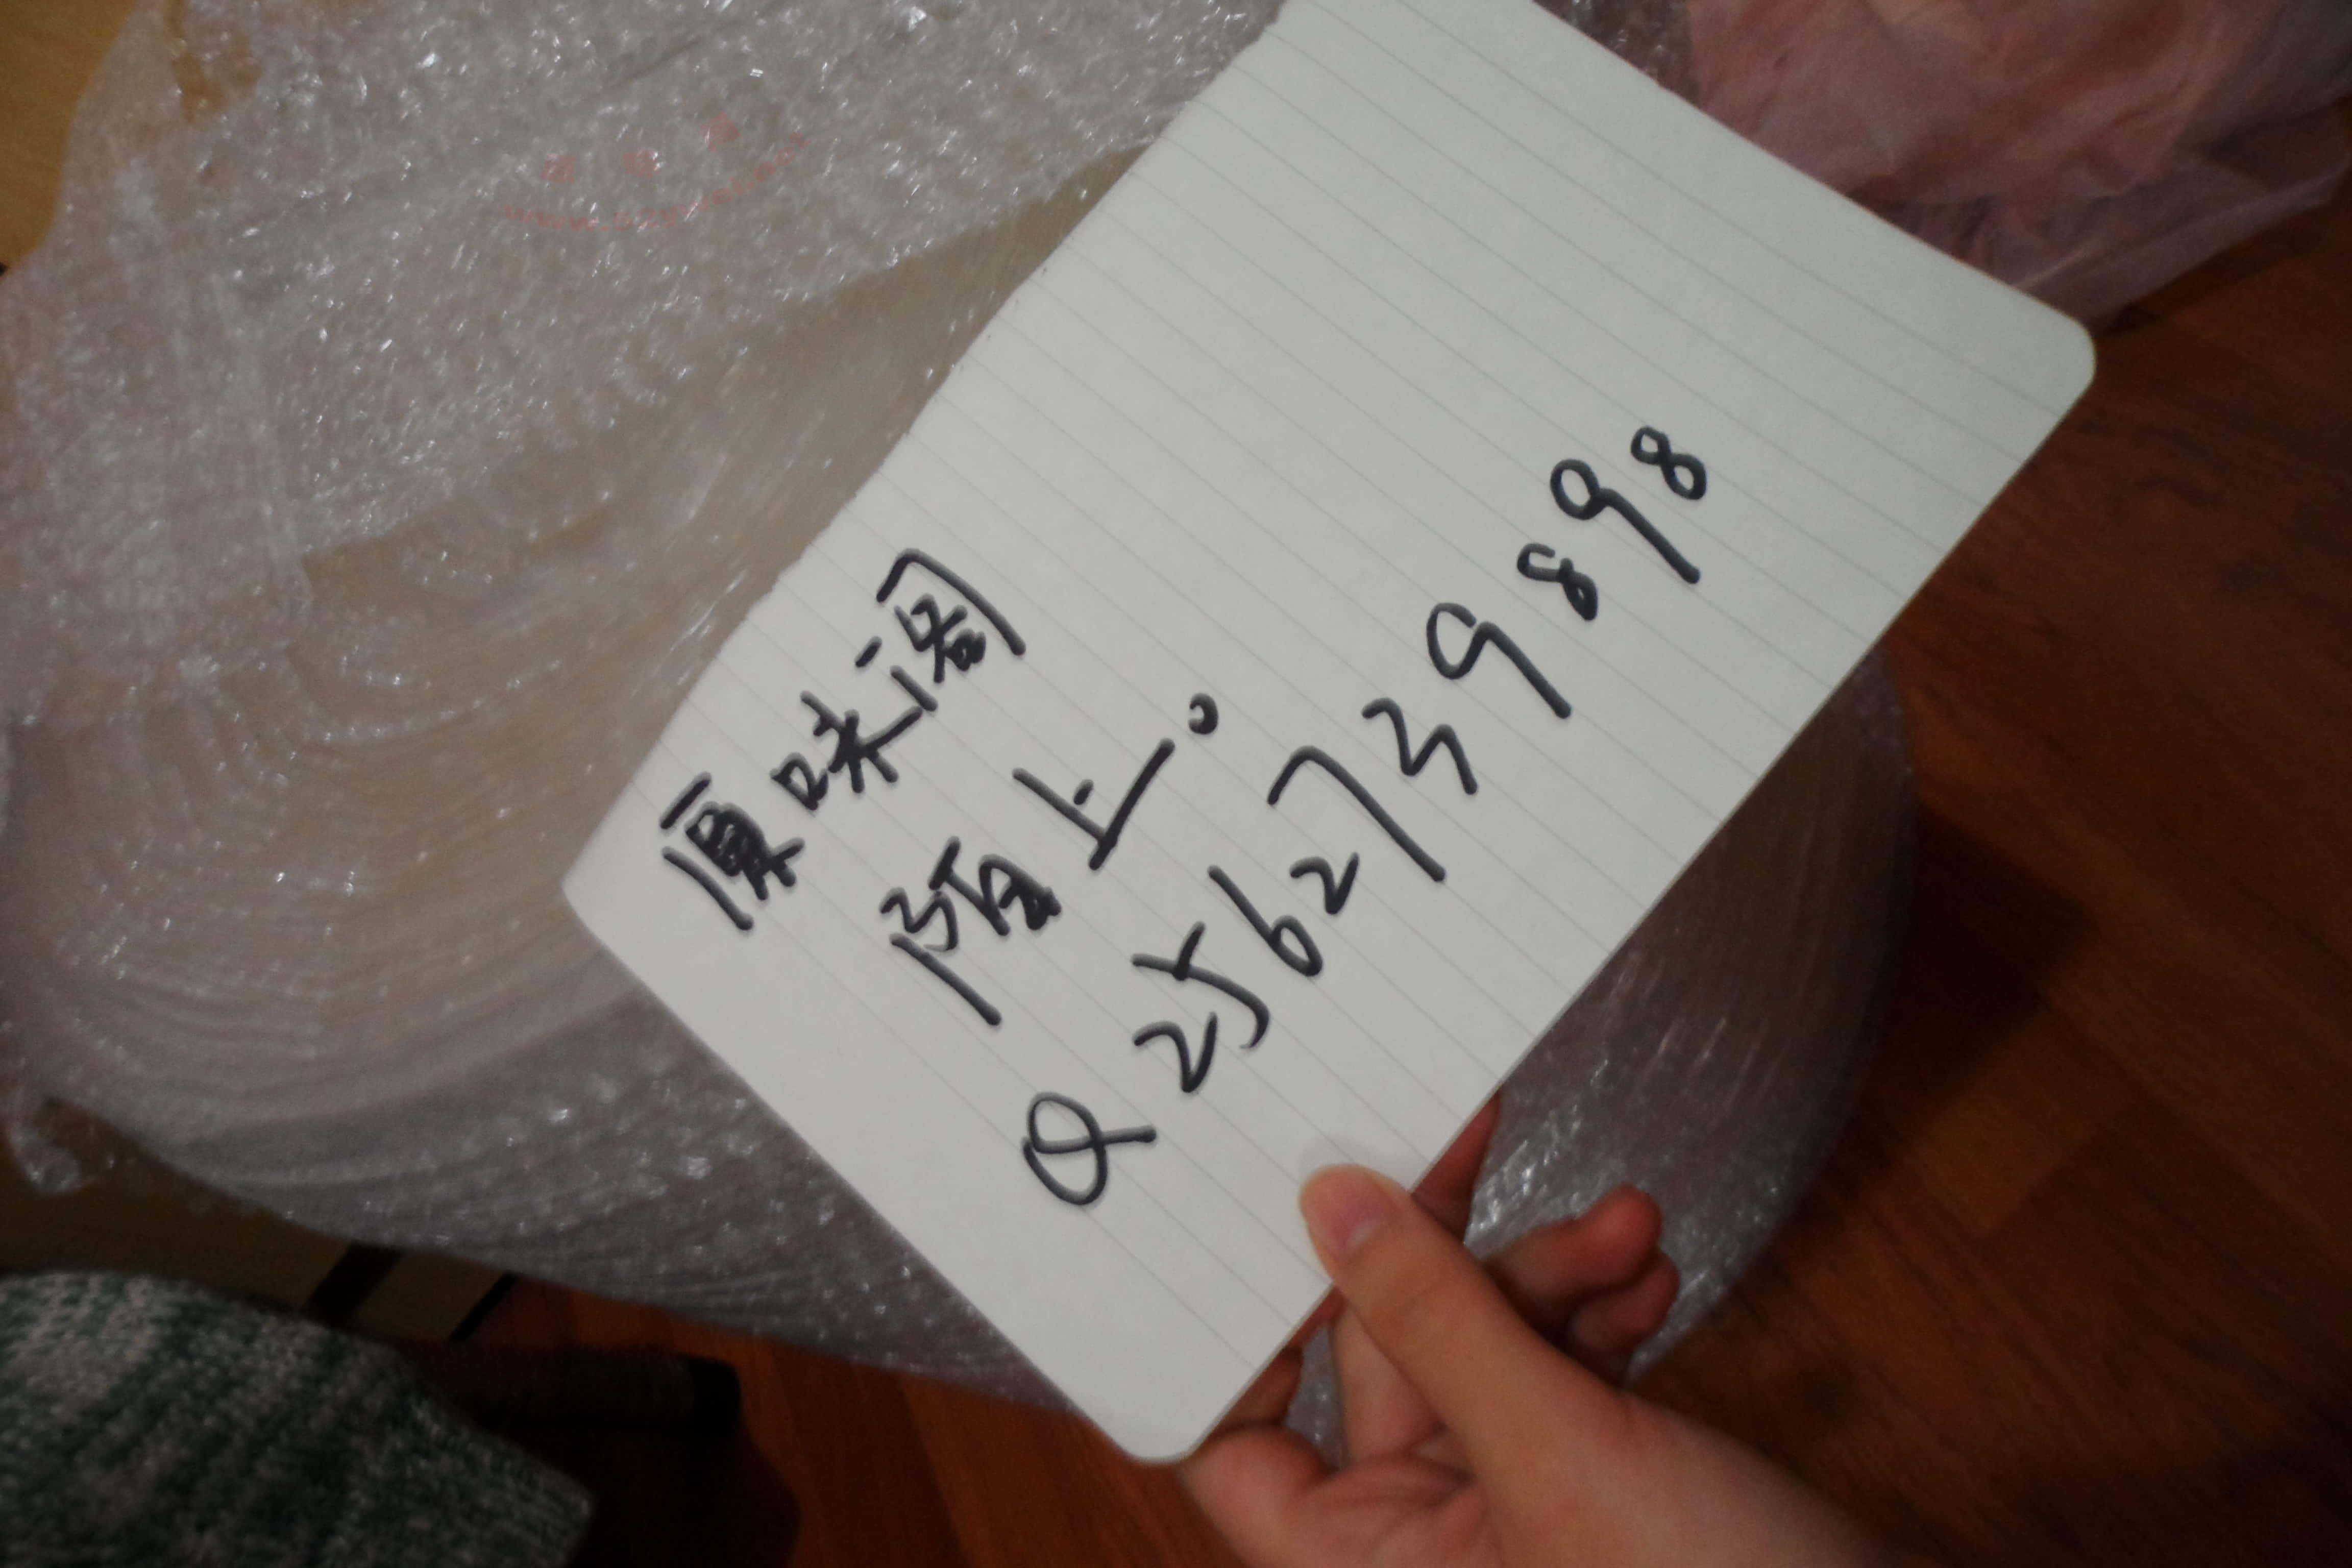 原味阁
陌上。
Q 2562739898